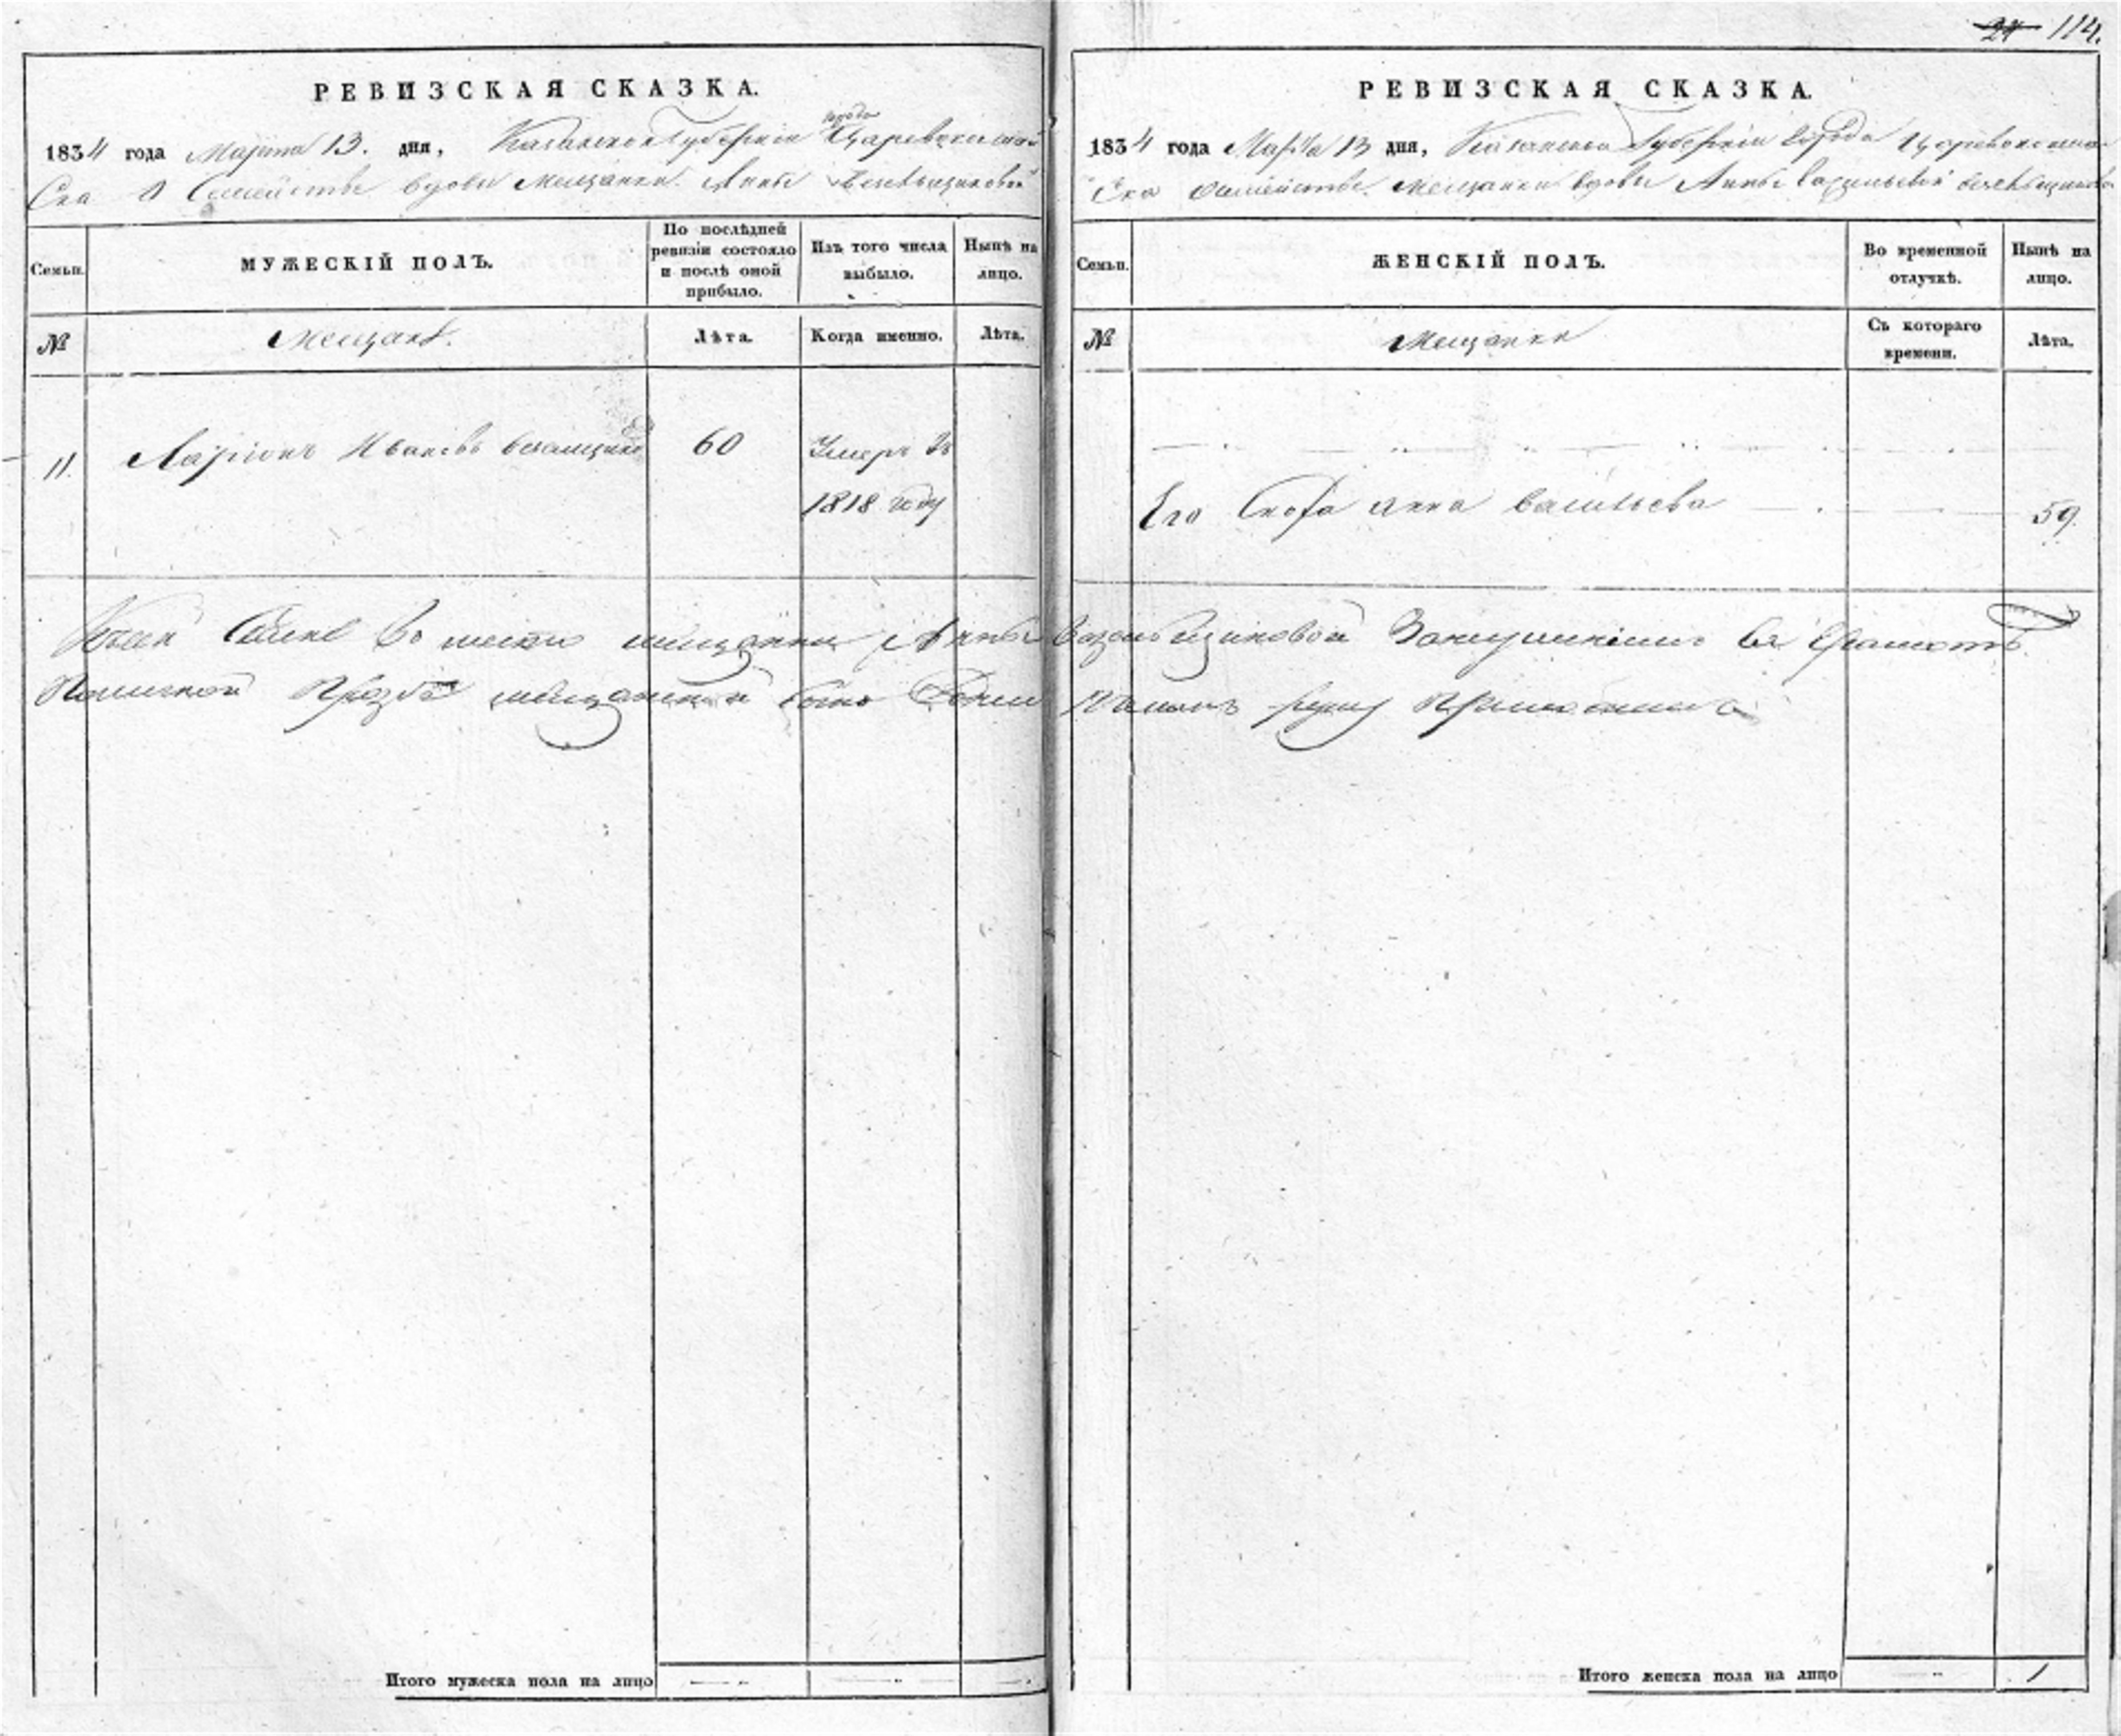 114.
РЕВИЗСКАЯ СКАЗКА.
1834 года Марта 13. дня, Казанской Губернiи города Царевококшай
Ска О Семействе вдовы Мещанки Анны
Семьи.
МУЖЕСКІЙ ПОЛЪ.
По послѣдней ревизіи состояло и послѣ оной прибыло.
Изъ того числа выбыло.
Нынѣ на лицо.
№
Мещанъ.
Лѣта.
Когда именно.
Лѣта.
11.
Ларіонъ Ивановъ
60
Умеръ въ
1818 году
Итого мужеска пола на лицо
РЕВИЗСКАЯ СКАЗКА.
1834 года Марта 13 дня, Казанской Губерніи города Царевококшай
Ска семействе мещанки вдовы Анны Васильевой
Семьи.
ЖЕНСКІЙ ПОЛЪ.
Во временной отлучкѣ.
Нынѣ на лицо.
№
Мещанки
Съ котораго времени.
Лѣта.
Его сноха Анна Васильева
59.
К сей скаске вместо мещанки Анны
прозбе мещанской руку приложилъ
Итого женска пола на лицо
1